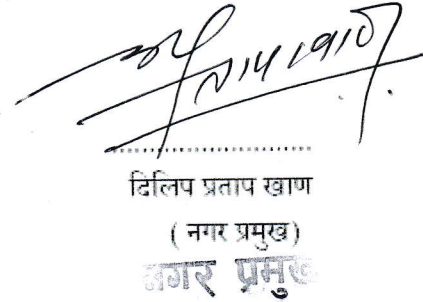 दिलिप प्रताप खाण
( नगर प्रमुख)
नगर प्रमुख